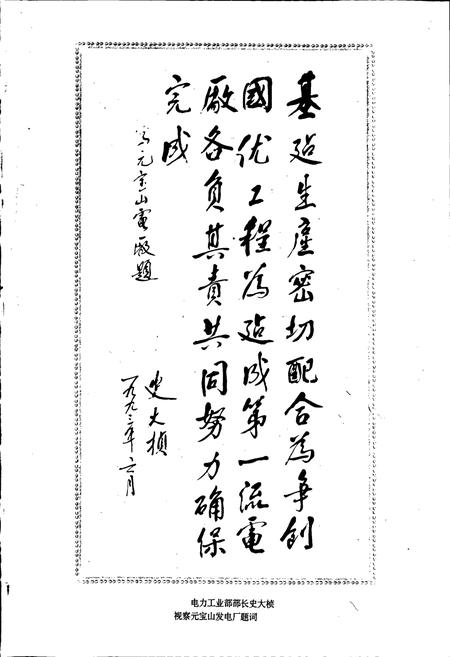 基建生產密切配合為争創
國优工程為建成第一流電
厰各負其責共同努力确保
完成
為元宝山電厰題
史大楨
一九九三年六月
电力工业部部长史大桢
视察元宝山发电厂题词